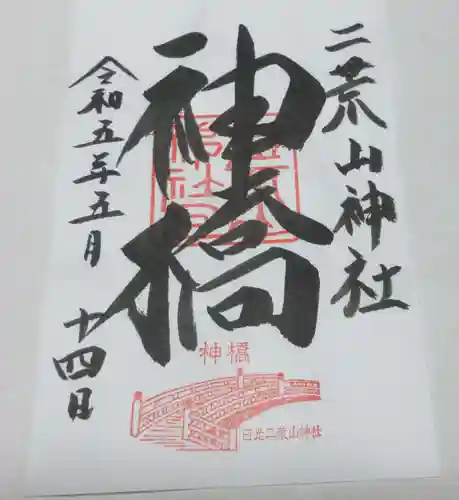 二荒山神社
神橋
令和五年五月
十四日
神橋
日光二荒山神社